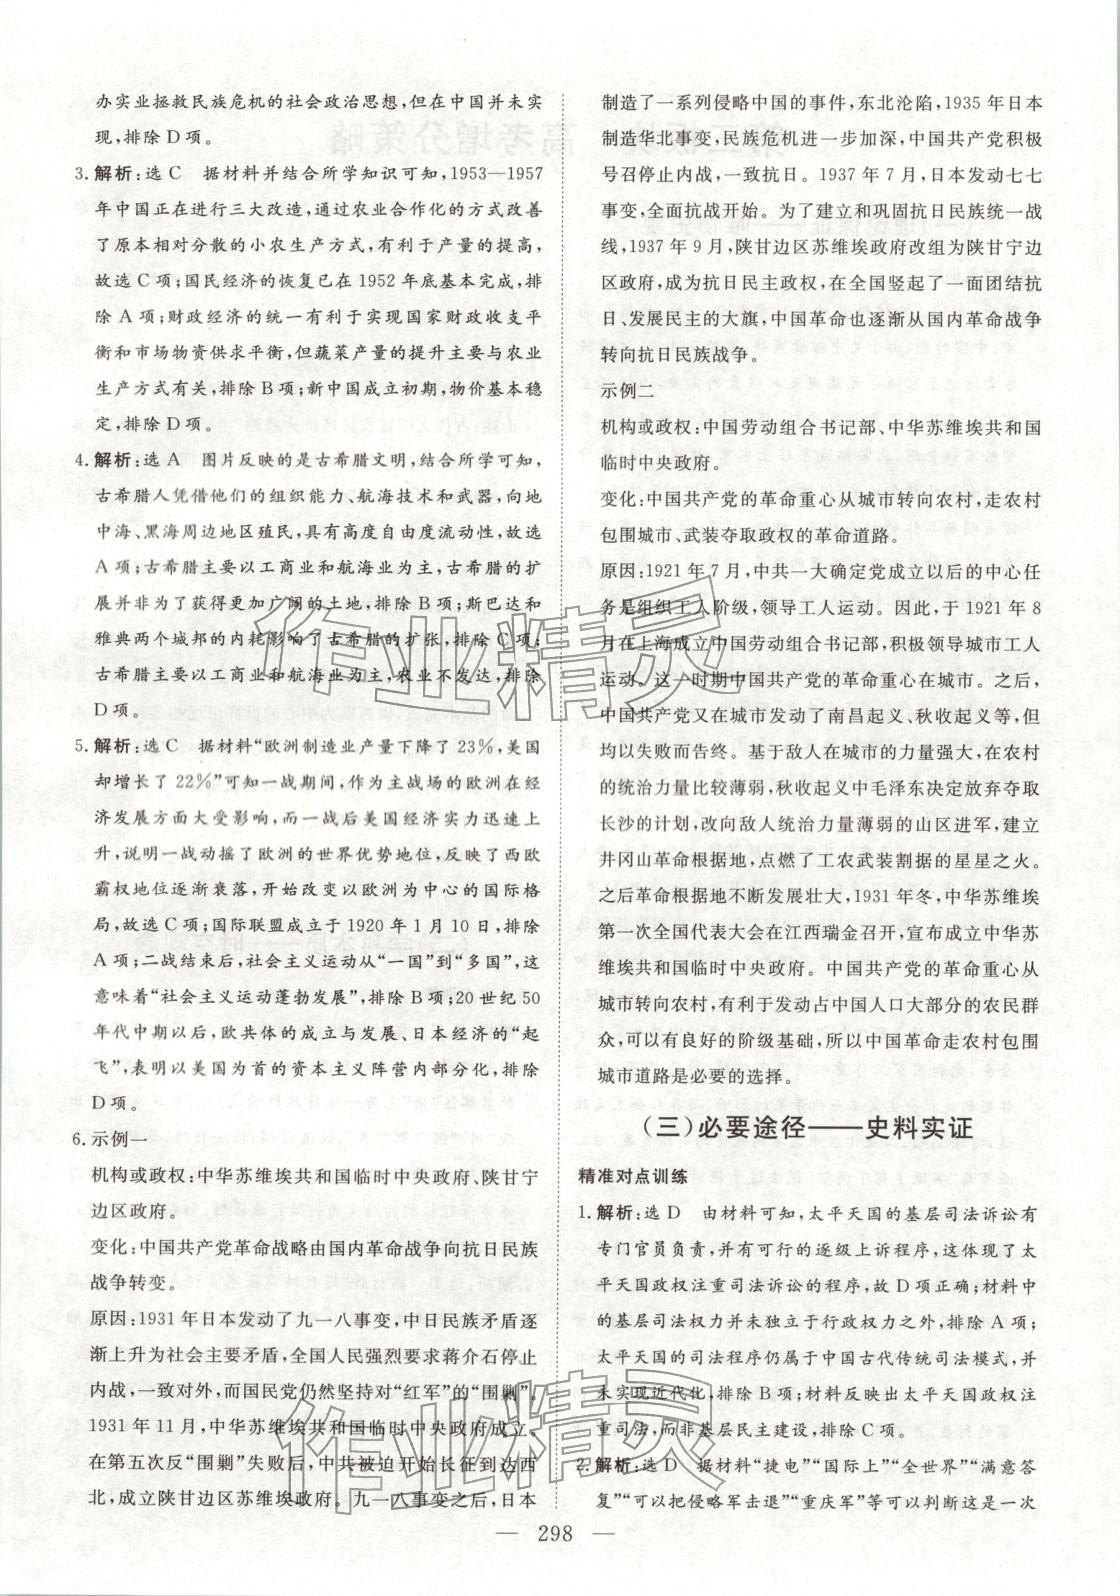 办实业拯救民族危机的社会政治思想,但在中国并未实
现,排除 D 项。
3. 解析:选 C　据材料并结合所学知识可知,1953—1957
年中国正在进行三大改造,通过农业合作化的方式改善
了原本相对分散的小农生产方式,有利于产量的提高,
故选 C 项;国民经济的恢复已在 1952 年底基本完成,排
除 A 项;财政经济的统一有利于实现国家财政收支平
衡和市场物资供求平衡,但蔬菜产量的提升主要与农业
生产方式有关,排除 B 项;新中国成立初期,物价基本稳
定,排除 D 项。
4. 解析:选 A　图片反映的是古希腊文明,结合所学可知,
古希腊人凭借他们的组织能力、航海技术和武器,向地
中海、黑海周边地区殖民,具有高度自由度流动性,故选
A 项;古希腊主要以工商业和航海业为主,古希腊的扩
展并非为了获得更加广阔的土地,排除 B 项;斯巴达和
雅典两个城邦的内耗影响了古希腊的扩张,排除 C 项;
古希腊主要以工商业和航海业为主,农业不发达,排除
D 项。
5. 解析:选 C　据材料“欧洲制造业产量下降了 23%,美国
却增长了 22%”可知一战期间,作为主战场的欧洲在经
济发展方面大受影响,而一战后美国经济实力迅速上
升,说明一战动摇了欧洲的世界优势地位,反映了西欧
霸权地位逐渐衰落,开始改变以欧洲为中心的国际格
局,故选 C 项;国际联盟成立于 1920 年 1 月 10 日,排除
A 项;二战结束后,社会主义运动从“一国”到“多国”,这
意味着“社会主义运动蓬勃发展”,排除 B 项;20 世纪 50
年代中期以后,欧共体的成立与发展、日本经济的“起
飞”,表明以美国为首的资本主义阵营内部分化,排除
D 项。
6. 示例一
机构或政权:中华苏维埃共和国临时中央政府、陕甘宁
边区政府。
变化:中国共产党革命战略由国内革命战争向抗日民族
战争转变。
原因:1931 年日本发动了九一八事变,中日民族矛盾逐
渐上升为社会主要矛盾,全国人民强烈要求蒋介石停止
内战,一致对外,而国民党仍然坚持对“红军”的“围剿”。
1931 年 11 月,中华苏维埃共和国临时中央政府成立。
在第五次反“围剿”失败后,中共被迫开始长征到达西
北,成立陕甘边区苏维埃政府。九一八事变之后,日本
制造了一系列侵略中国的事件,东北沦陷,1935 年日本
制造华北事变,民族危机进一步加深,中国共产党积极
号召停止内战,一致抗日。1937 年 7 月,日本发动七七
事变,全面抗战开始。为了建立和巩固抗日民族统一战
线,1937 年 9 月,陕甘边区苏维埃政府改组为陕甘宁边
区政府,成为抗日民主政权,在全国竖起了一面团结抗
日、发展民主的大旗,中国革命也逐渐从国内革命战争
转向抗日民族战争。
示例二
机构或政权:中国劳动组合书记部、中华苏维埃共和国
临时中央政府。
变化:中国共产党的革命重心从城市转向农村,走农村
包围城市、武装夺取政权的革命道路。
原因:1921 年 7 月,中共一大确定党成立以后的中心任
务是组织工人阶级,领导工人运动。因此,于 1921 年 8
月在上海成立中国劳动组合书记部,积极领导城市工人
运动。这一时期中国共产党的革命重心在城市。之后,
中国共产党又在城市发动了南昌起义、秋收起义等,但
均以失败而告终。基于敌人在城市的力量强大,在农村
的统治力量比较薄弱,秋收起义中毛泽东决定放弃夺取
长沙的计划,改向敌人统治力量薄弱的山区进军,建立
井冈山革命根据地,点燃了工农武装割据的星星之火。
之后革命根据地不断发展壮大,1931 年冬,中华苏维埃
第一次全国代表大会在江西瑞金召开,宣布成立中华苏
维埃共和国临时中央政府。中国共产党的革命重心从
城市转向农村,有利于发动占中国人口大部分的农民群
众,可以有良好的阶级基础,所以中国革命走农村包围
城市道路是必要的选择。
(三)必要途径——史料实证
精准对点训练
1. 解析:选 D　由材料可知,太平天国的基层司法诉讼有
专门官员负责,并有可行的逐级上诉程序,这体现了太
平天国政权注重司法诉讼的程序,故 D 项正确;材料中
的基层司法权力并未独立于行政权力之外,排除 A 项;
太平天国的司法程序仍属于中国古代传统司法模式,并
未实现近代化,排除 B 项;材料反映出太平天国政权注
重司法,而非基层民主建设,排除 C 项。
2. 解析:选 D　据材料“捷电”“国际上”“全世界”“满意答
复”“可以把侵略军击退”“重庆军”等可以判断这是一次
— 298 —
作业精灵
作业精灵